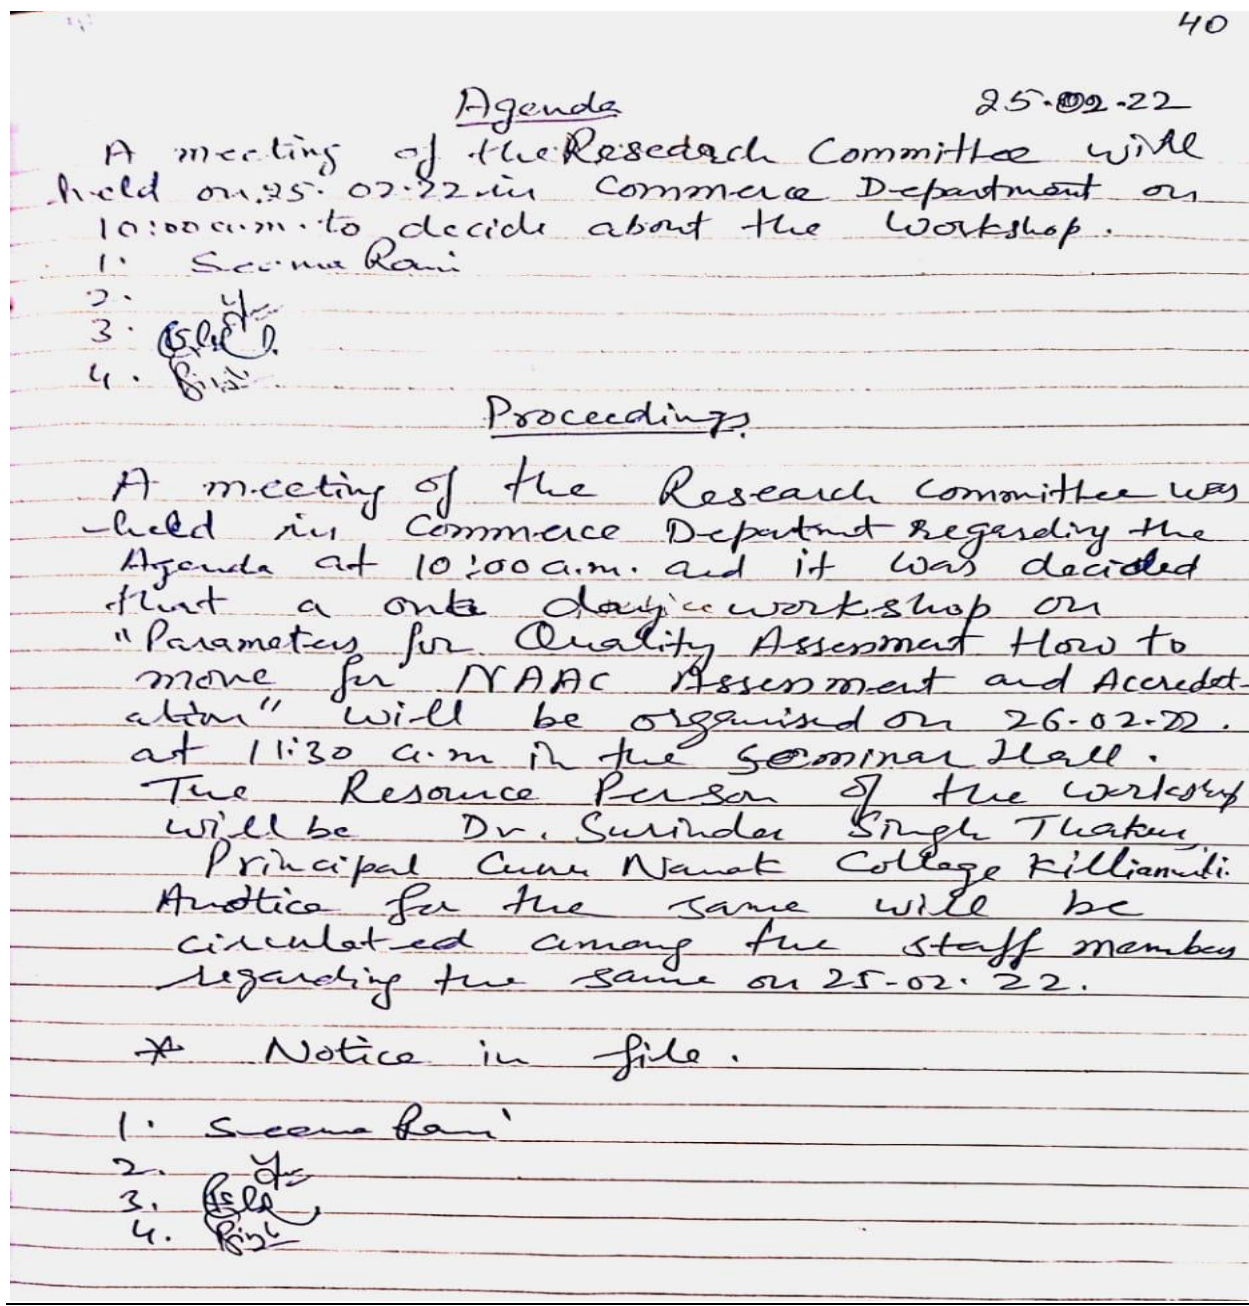 40
Agenda 25.02.22
A meeting of the Research Committee will
held on 25.02.22 in Commerce Department on
10:00 a.m. to decide about the Workshop.
1. Seema Rani
2.
3.
4.
Proceedings
A meeting of the Research Committee was
held in Commerce Department regarding the
Agenda at 10:00 a.m. and it was decided
that a one day workshop on
"Parameters for Quality Assessment How to
move for NAAC Assessment and Accredet-
ation" will be organised on 26-02-22.
at 11:30 a.m in the Seminar Hall.
The Resource Person of the workshop
will be Dr. Surinder Singh Thakur
Principal Guru Nanak College Killianwali.
A notice for the same will be
circulated among the staff members
regarding the same on 25-02.22.
* Notice in file.
1. Seema Rani
2.
3.
4.